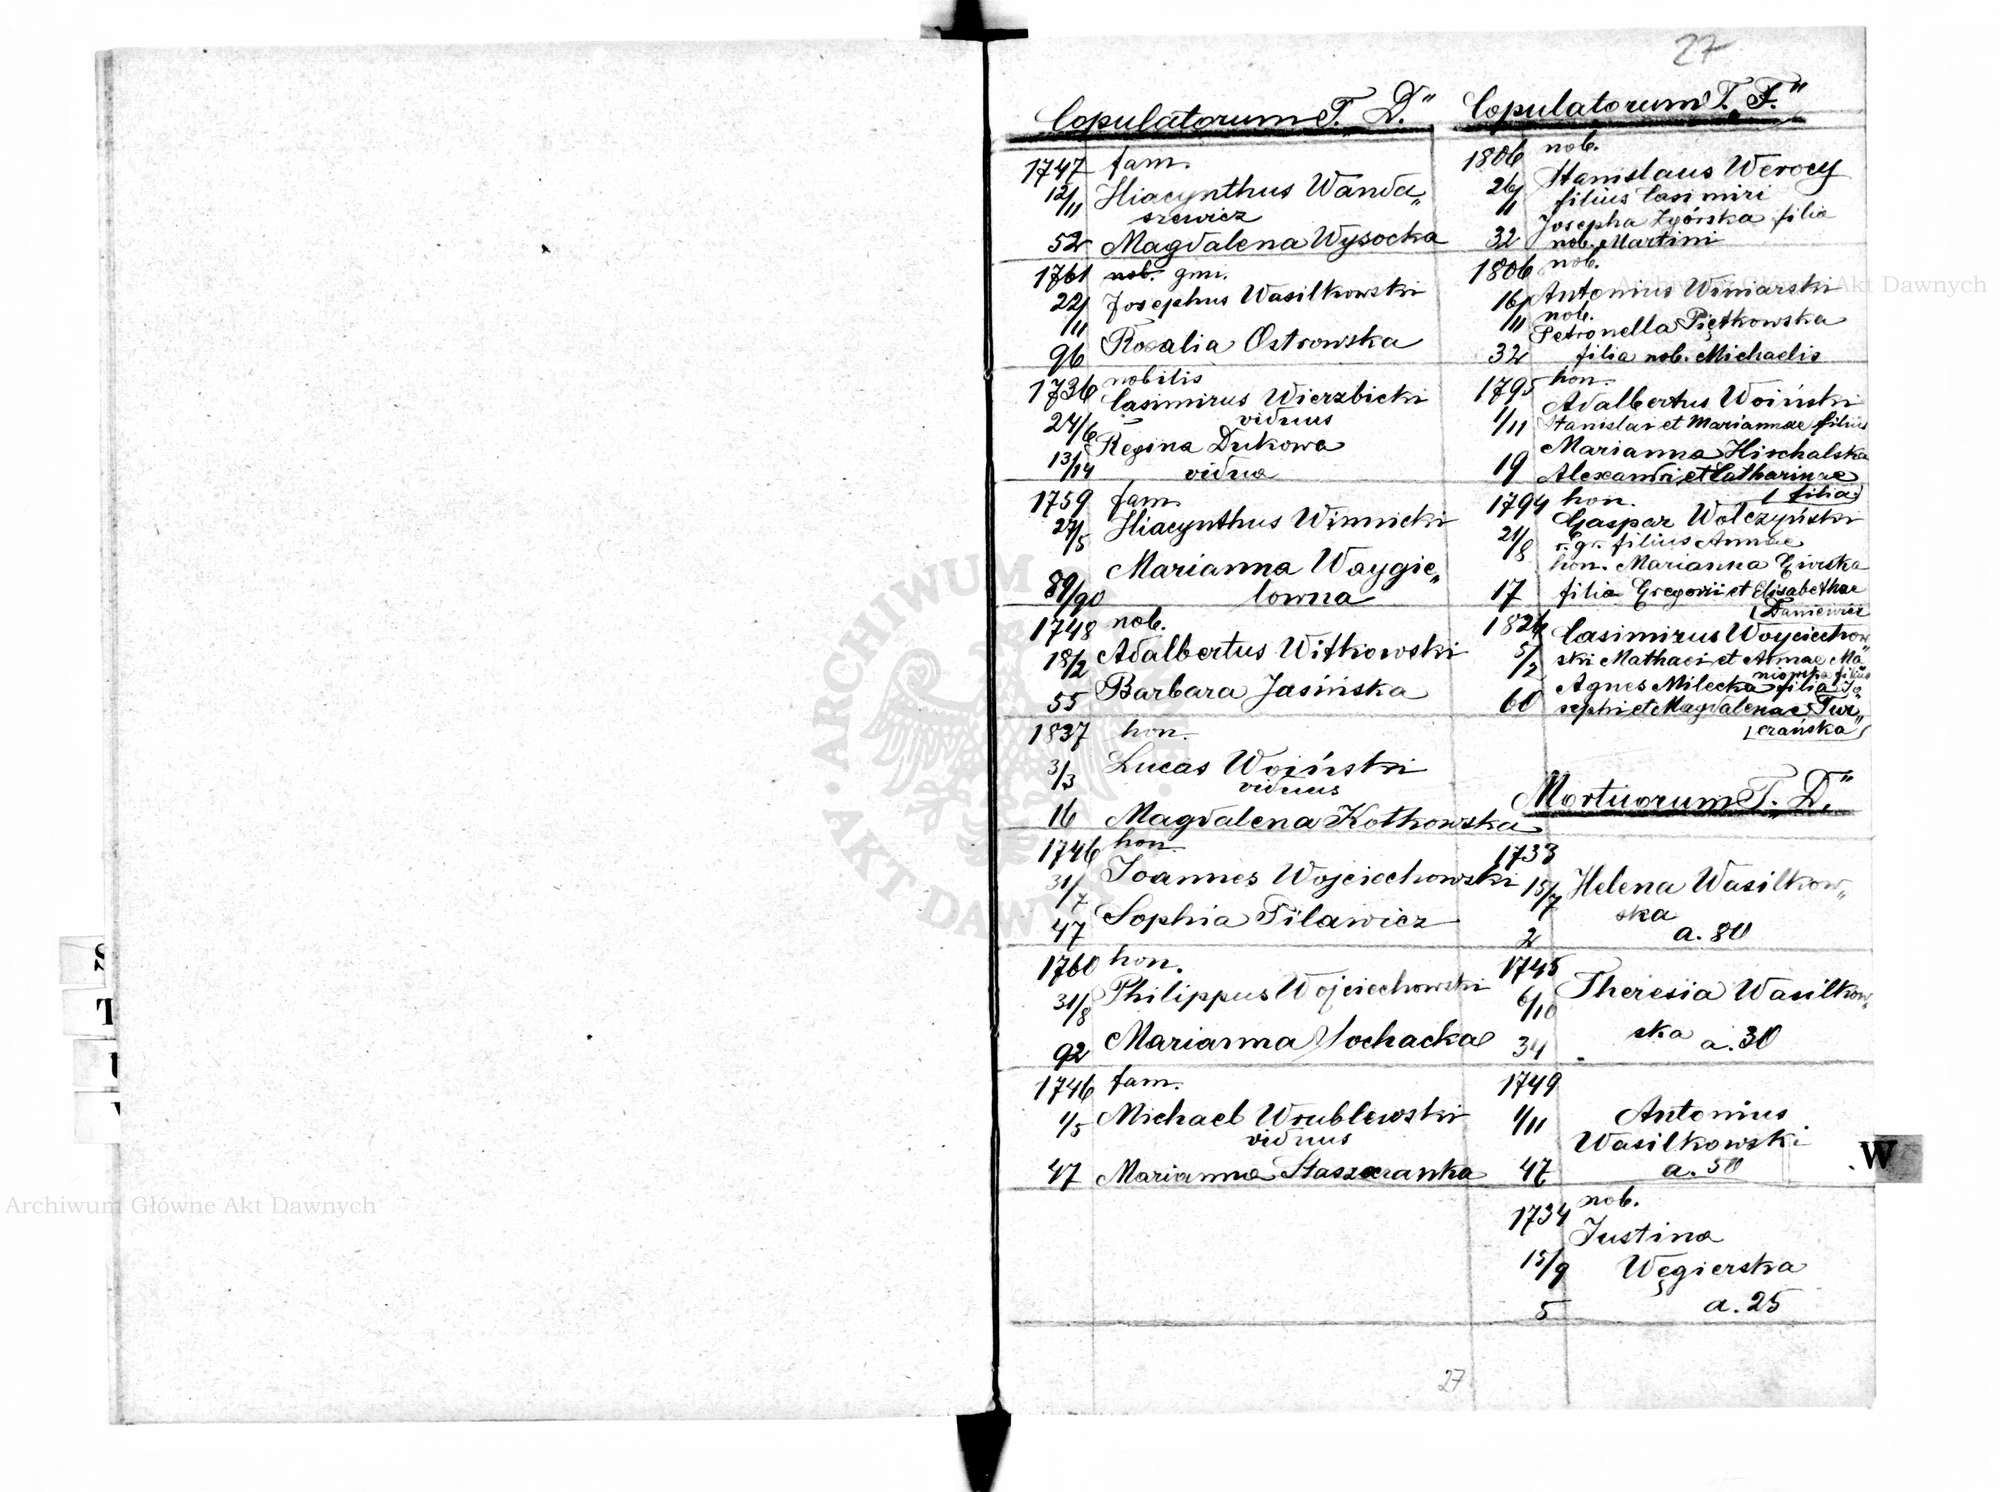 27
Copulatorum T. "D."
1747 fam.
12/11 Hiacynthus Wanda„
szewicz
52 Magdalena Wysocka
1761 nob. gm.
22/11 Josephus Wasilkowski
96 Rosalia Ostrowska
1736 nobilis
24/6 Casimirus Wierzbicki
viduus
13/14 Regina Dukowa
vidua
1759 fam.
27/5 Hiacynthus Winnicki
Marianna Waygie„
89/90 lowna
1748 nob.
18/2 Adalbertus Witkowski
55 Barbara Jasińska
1837 hon.
3/3 Lucas Woiński
viduus
16 Magdalena Kotkowska
1746 hon.
31/7 Joannes Wojciechowski
47 Sophia Pilawicz
1760 hon.
31/8 Philippus Wojciechowski
92 Marianna Sochacka
1746 fam.
1/5 Michael Wrublewski
viduus
47 Marianna
Copulatorum T. "F."
1806 nob.
26/11 Stanislaus Werocy
filius Casimiri
Josepha Zgórska filia
32 nob. Martini
1806 nob.
16/11 Antonius Winiarski
nob.
Petronella Piętkowska
32 filia nob. Michaelis
1795 hon.
1/11 Adalbertus Woiński
Stanislai et Mariannae filius
Marianna
19 Alexandri et Catharinae
filia
1794 hon.
21/8 Gaspar Wolczyński
r. gr. filius Annae
hon. Marianna
17 filia Gregorii et Elisabethae
Daniewicz
1826 Casimirus Woyciechow„
5/2 ski Mathaei et Annae
filius
Agnes Milecka filia Jo„
60 sephi et Magdalenae
Mortuorum T. "D."
1733
15/7 Helena Wasilkow„
ska
2 a. 80
1745
6/10 Theresia Wasilkow„
34 ska a. 30
1749
1/11 Antonius
Wasilkowski
47 a. 50
nob.
1734 Justina
15/9 Węgierska
5 a. 25
27
W
S
T
Archiwum Główne Akt Dawnych
Archiwum Główne Akt Dawnych
ARCHIWUM GŁÓWNE AKT DAWNYCH